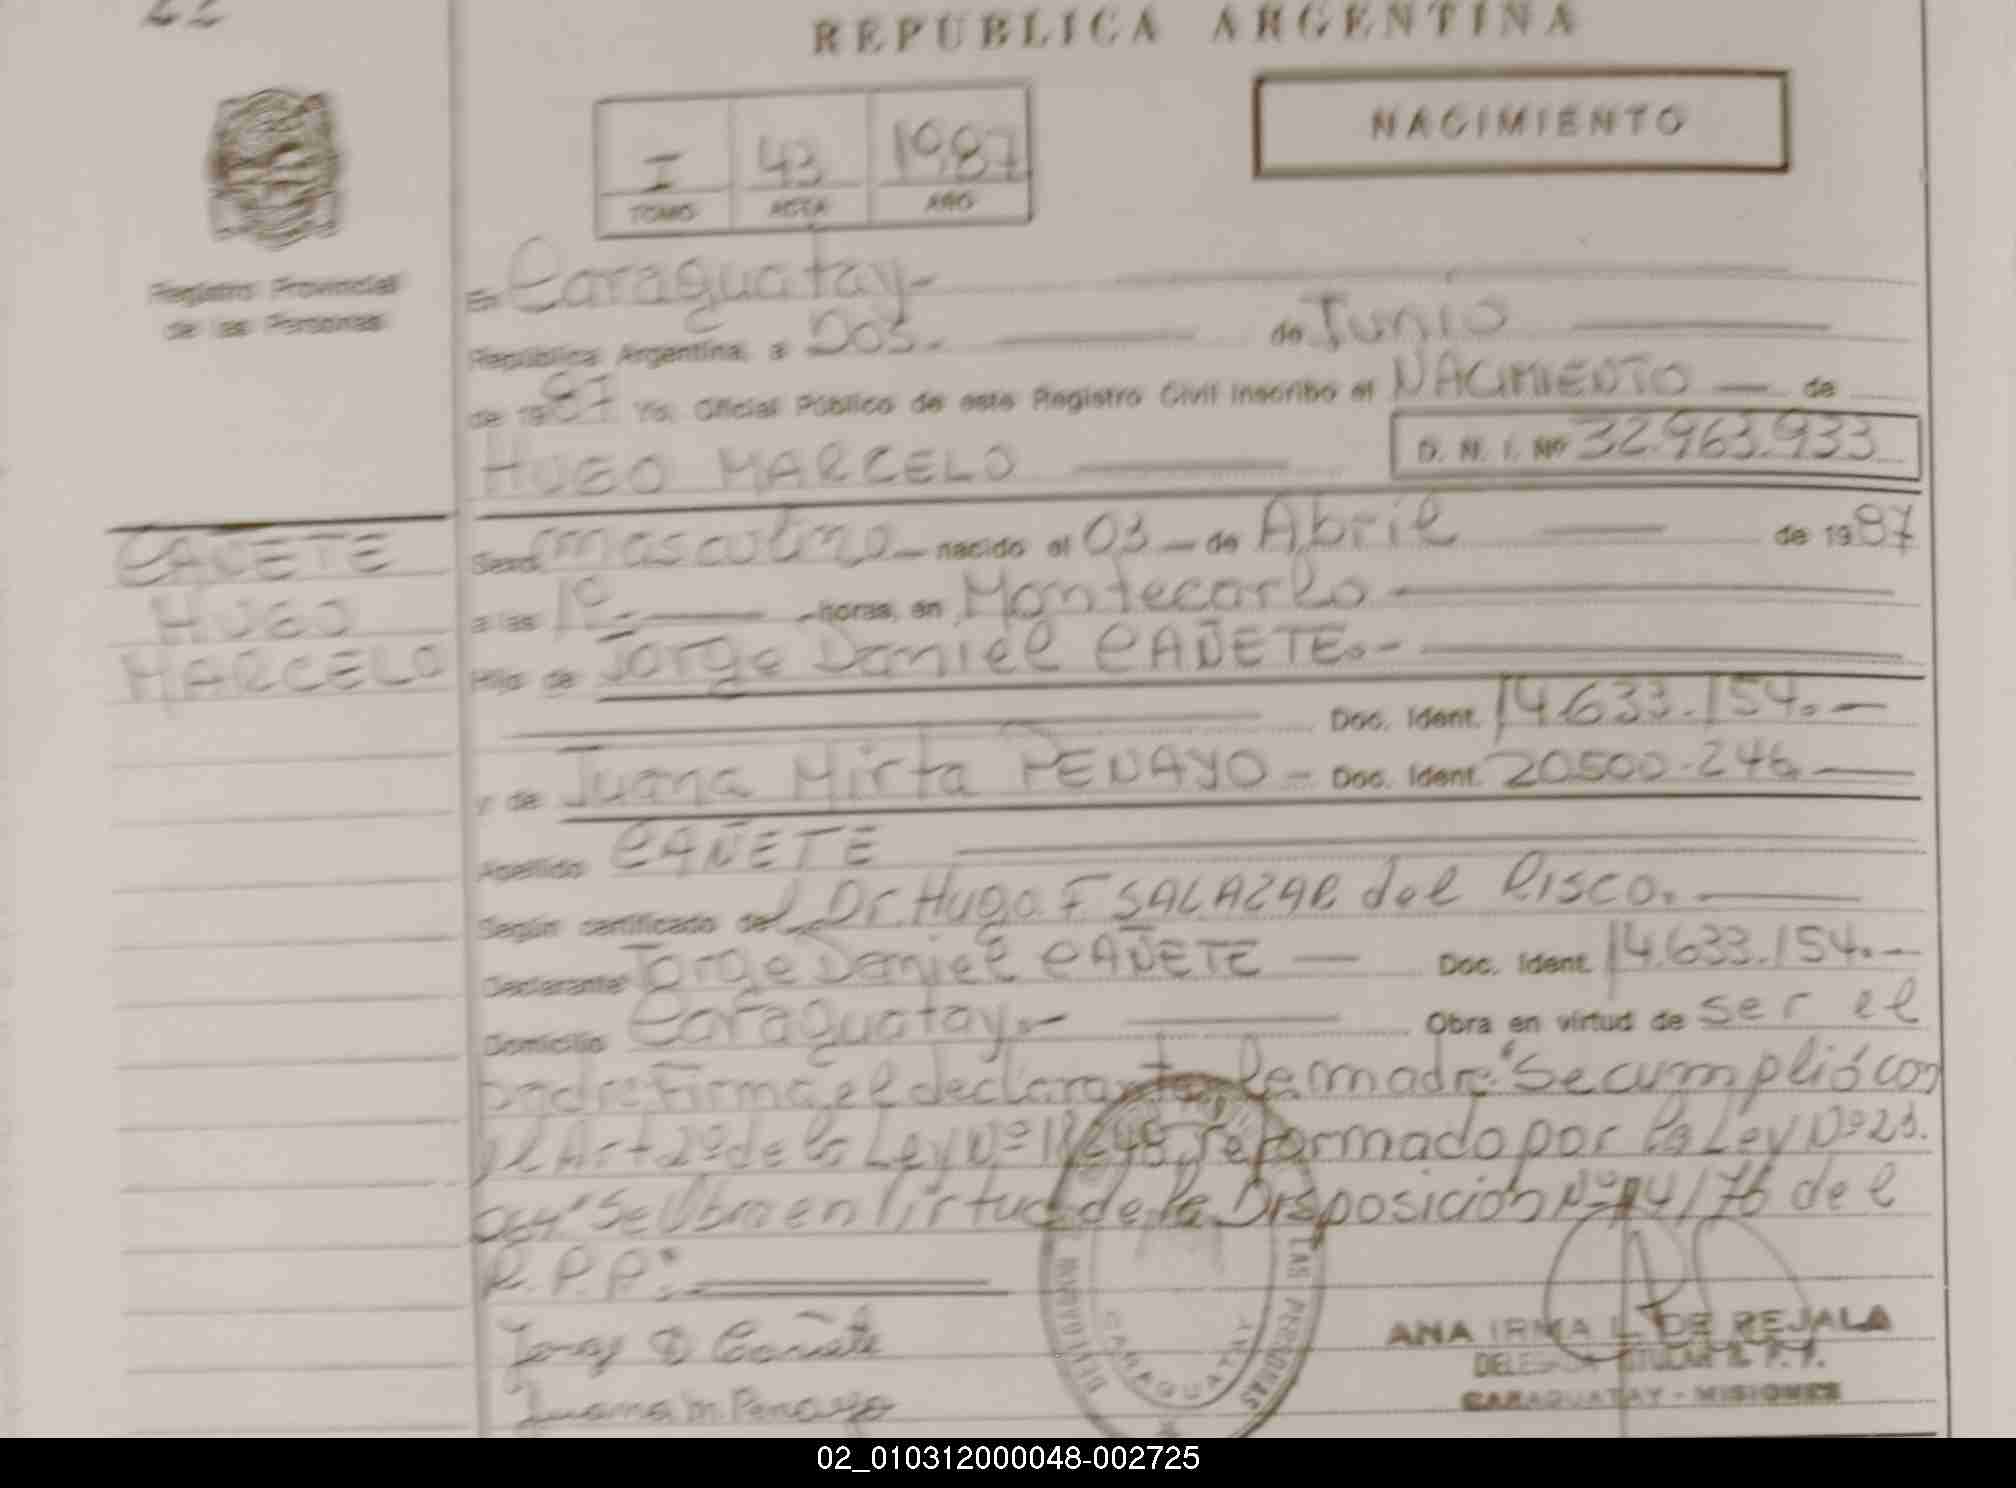 22
REPUBLICA ARGENTINA
NACIMIENTO
I 43 1987
TOMO ACTA AÑO
Registro Provincial
de las Personas
En Caraguatay.-
República Argentina, a Dos.- de Junio
de 1987 Yo, Oficial Público de este Registro Civil inscribo el NACIMIENTO — de
HUGO MARCELO D. N. I. Nº 32.963.933
CAÑETE
HUGO
MARCELO
Sexo masculino — nacido el 03 — de Abril de 1987
a las horas, en Montecarlo
Hijo de Jorge Daniel CAÑETE.-
Doc. Ident. 14.633.154.-
y de Juana Mirta PENAYO - Doc. Ident. 20.500.246.
Apellido CAÑETE
Según certificado del Dr. Hugo F. SALAZAR del Risco.
Declarante Jorge Daniel CAÑETE — Doc. Ident. 14.633.154.-
Domicilio Caraguatay.- Obra en virtud de ser el
padre Firma el declarante la madre "Se cumplió con
el Art 2º de la Ley Nº 18248, reformado por la Ley Nº 23.
264" Se Obra en Virtud de la Disposición Nº 114/76 del
R.P.P.
Jorge D Cañete
Juana M. Penayo
LAS PERSONAS
CARAGUATAY
ANA IRMA L. DE REJALA
DELEGADA TITULAR R. P. P.
CARAGUATAY - MISIONES
02_010312000048-002725